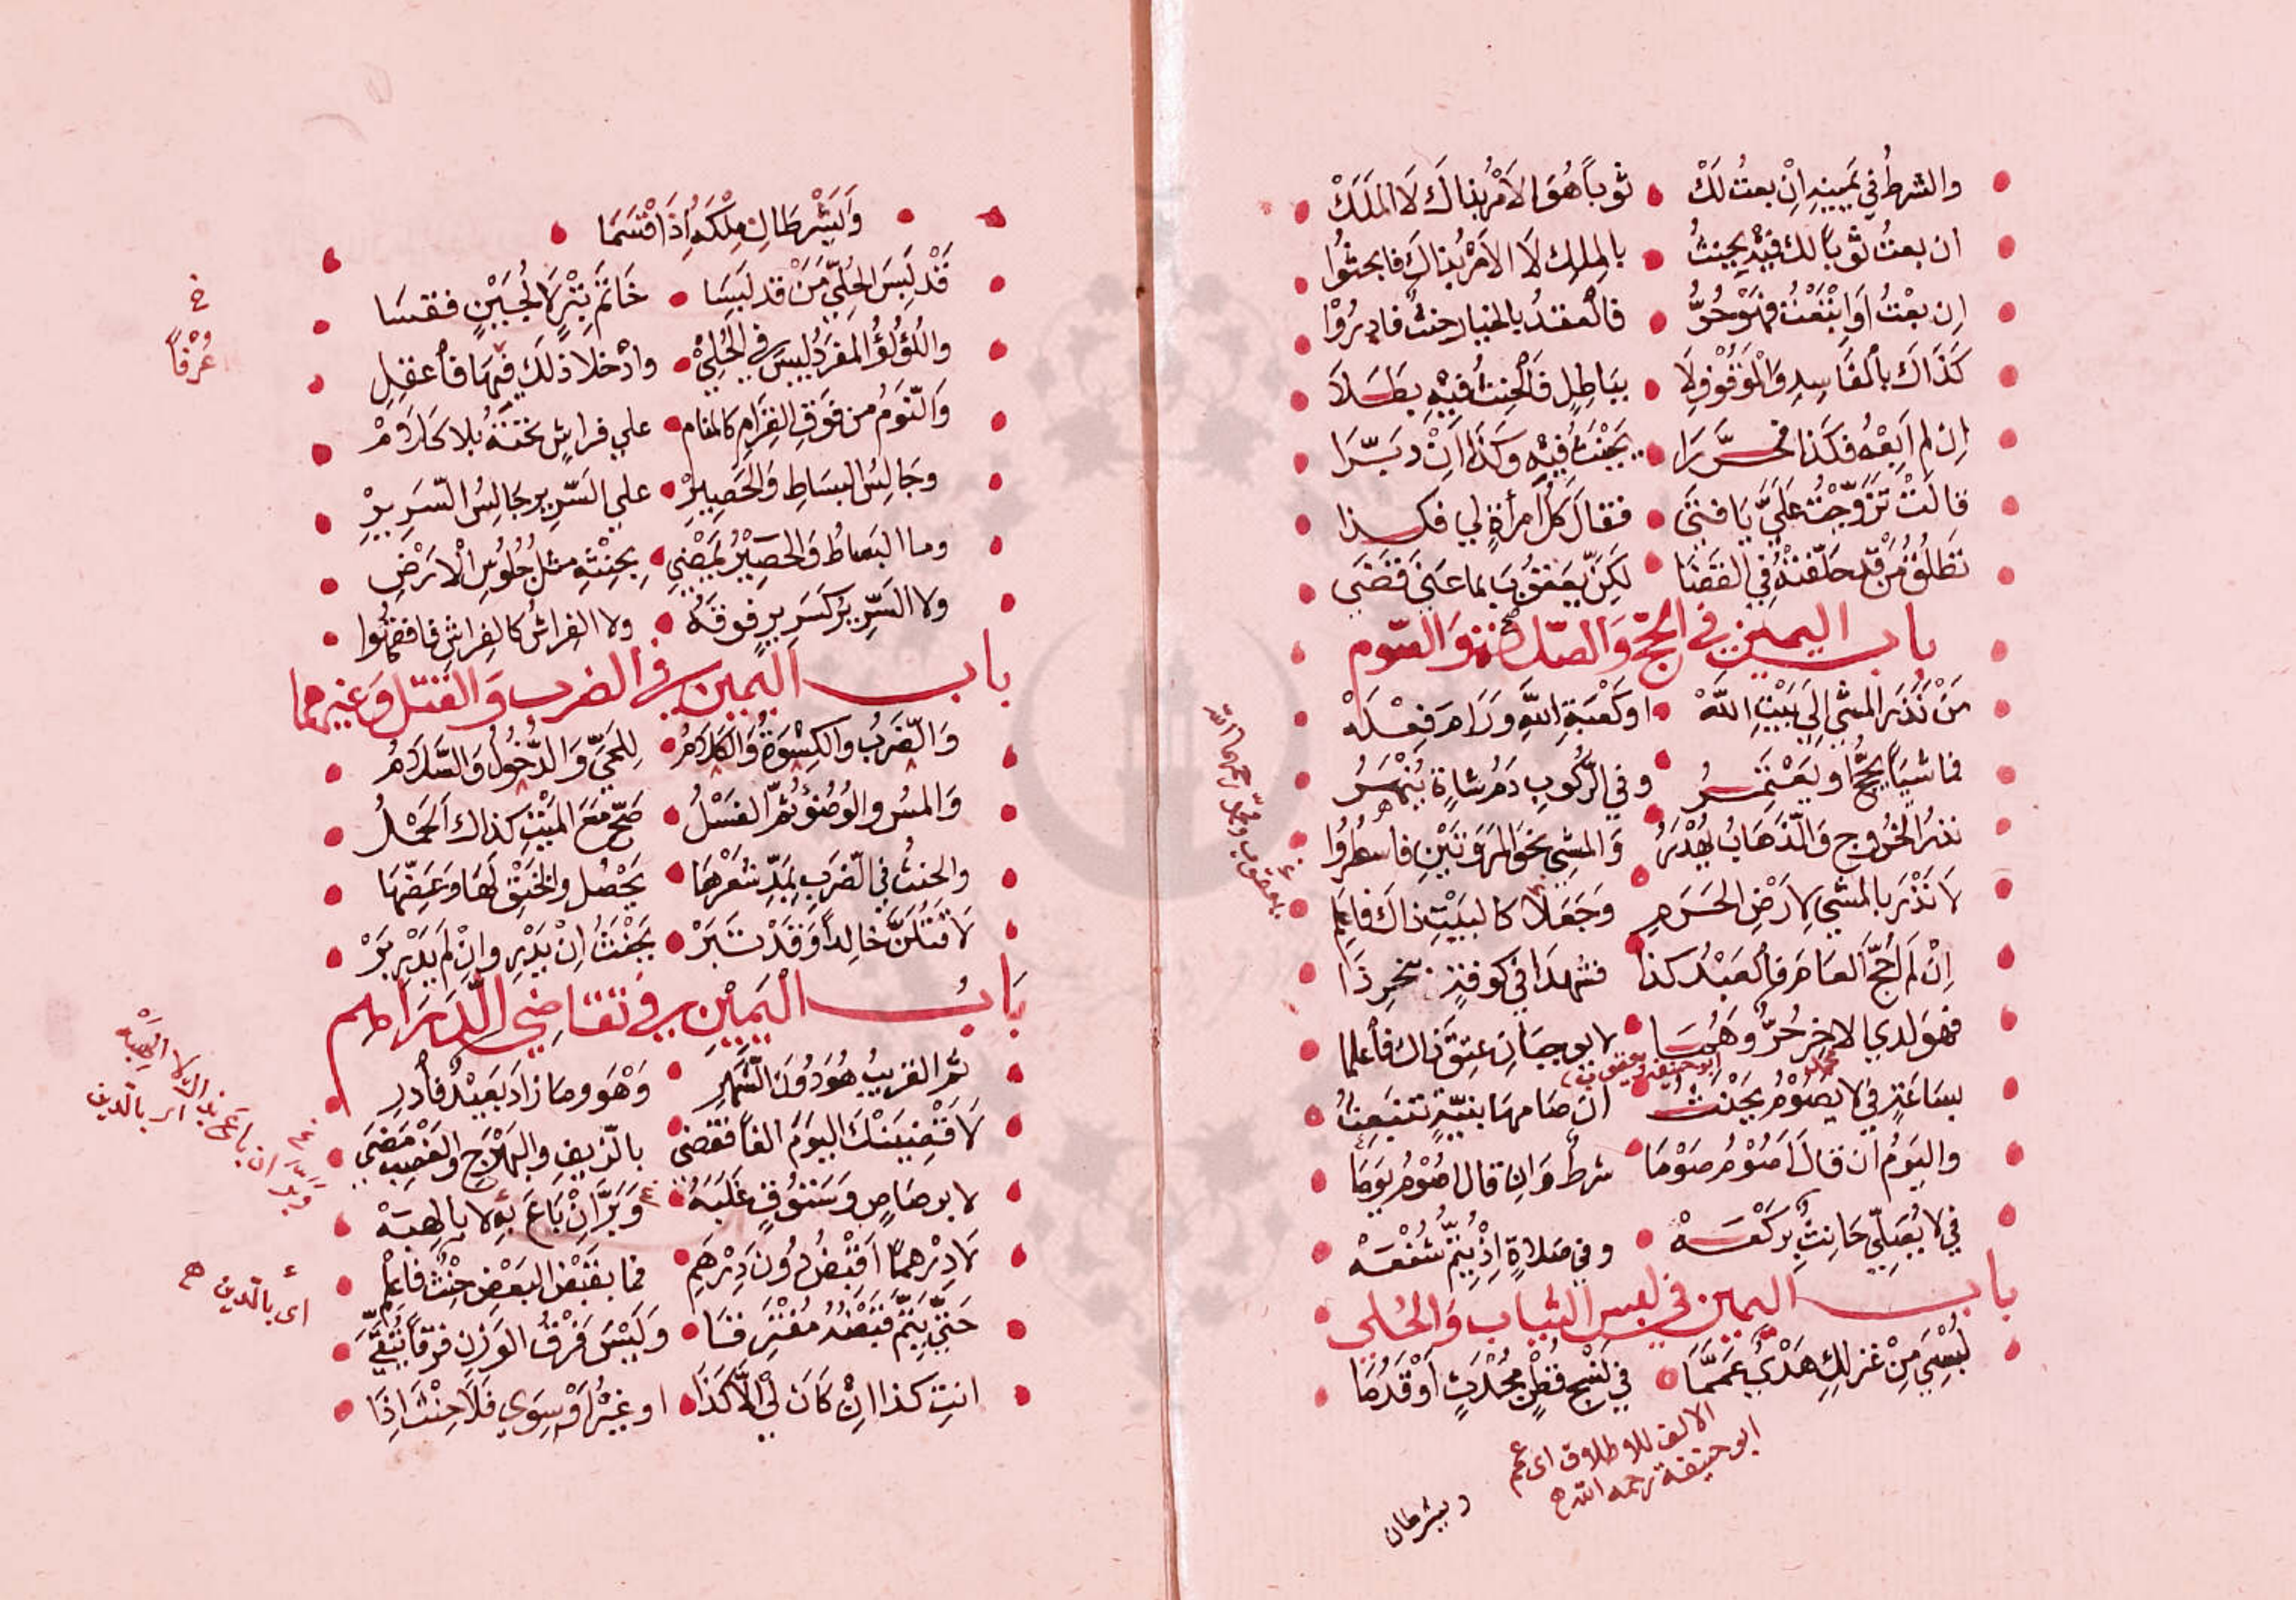 والشرطُ في يَمينِهِ اِنْ بعتُ لَكْ ثوباً هُوَ الاَمْرُ بذاكَ لَا الملَكْ
ان بعتُ ثوباً لك فيهِ يحنثُ بالملكِ لَا الاَمْرُ بذاكَ فابحثُوا
اِن بعْتُ اَوِ ابْتَعْتُ فَهُوْ حُرُّ فالعقدُ بالخيارِ حنثٌ فادرُوْا
كَذَاكَ بالفَاسِدِ وَالموْقُوْفِ لَا بباطِلٍ فَالحِنثُ فيْهِ بطَلَا
اِن لم اَبِعْهُ فكَذا فحرَّرَا يَحْنَثُ فيْهِ وكَذَا اِنْ دبَّرَا
قالَتْ تَزَوَّجْتَ عَلَيَّ يَا فتَى فقالَ كلُّ امرأةٍ لي فكذا
تطلُقُ مَن قد حلّفتْهُ في القَضَا لكن يعقُوبَ بما عنَى قَضَى
باب اليمين في الحجّ والصّلاة والصّوم
مَنْ نَذَرَ المشيَ اِلَى بَيْتِ اللهْ او كَعْبَةِ اللهِ وَرَامَ فِعْلَهْ
فماشيًا يحجُّ او يَعْتَمِرُ وفي الرّكوبِ دَمُ شاةٍ يُنْهَرُ
نذرُ الخرُوجِ وَالذَّهَابُ يُهْدَرُ وَالمشيِ نحوَ المرْوَتَيْنِ فاسطُرُوا
لَا نَذْرَ بالمشيِ لارْضِ الحَرَمِ وجَعَلَا كالبيْتِ ذاكَ فاعلمِ
اِنْ لم اَحُجَّ العامَ فالعَبْدُ كذا فشهدَا في كوفةٍ بنحرِ ذَا
فهوَ لدي الاخِرِ حُرٌّ وهُمَا لا يوجبَانِ عِتقَ ذاكَ فاعلما
محمد ابوحنيفة ويعقوب
بسَاعَةٍ في لا يصُوْمُ يحْنَثُ ان صَامهَا بنيّةٍ تنبَعِثُ
واليَوْمُ ان قالَ اَصُوْمُ صَوْمَا شرطٌ وَان قال اصُوْمُ يَوْمَا
في لا يُصَلّي حَانثٌ بركْعَهْ وفي صَلاةٍ اِذْ يُتِمُّ شُفْعَهْ
باب اليمين في لبس الثياب والحُلي
لُبْسِيَ مِنْ غزلكِ هَدْيٌ عَمَّمَا في نَسْجِ قُطْنٍ مُحْدَثٍ اَوْ قَدُمَا
الالف للاطلاق اي عمم
ابو حنيفة رحمه الله
ويشرطان
يعقوب ومحمد رحمهما الله
وَيَشْرِطَانِ مِلْكَهُ اِذَا قْسَمَا
قَدْ لبِسَ الحُلِيَّ مَنْ قد لبَسَا خَاتمَ تِبْرٍ لَا لُجَيْنٍ فقسَا
واللؤلؤُ المفرَدُ ليسَ في الحُلِيْ وادْخلا ذلكَ فيهَا فاعقِلِ
وَالنّومُ من فَوقِ القِرَامِ كالمنام علي فراشٍ تحتَهُ بلا كلامْ
وجَالِسُ البسَاطِ وَالحَصِيرِ علي السّريرِ جَالِسُ السّرِيرِ
وما البساطُ وَالحصِيْرُ يمْضيْ بحِنثِهِ مثلُ جُلُوْسِ الْارْضِ
ولا السّريرُ كسَرِيرٍ فوقَهُ ولا الفراشُ كالفراشِ فافقهُوا
باب اليمين في الضرب والقتل وغيرهما
وَالضّرْبُ والكِسْوَةُ وَالكلَامُ لِلحَيِّ وَالدُّخُولُ وَالسَّلَامُ
وَالمسُّ والوُضُوْءُ ثمَّ الغسْلُ صَحَّ مَعَ المَيْتِ كذاك الحَمْلُ
والحنثُ في الضّربِ بمَدِّ شعْرِهَا يَحْصُل والخَنْقِ لَهَا وعَضِّهَا
لَاقتُلَنَّ خالدًا وَقَدْ تبَرْ يَحْنَثُ اِنْ يَدْرِ وانْ لم يَدْرِ بَرْ
بَابُ الْيَمِيْنِ في تَقَاضِي الدَّرَاهِم
ثمّ القريبُ هُوَ دُوْنَ الشّهْرِ وَهْوَ وما زادَ بَعيْدٌ فادرِ
لَاقْضِيَنْكَ اليومَ الفاً فقضى بالزيفِ والبهْرَجِ والغصْبِ مَضَى
لا برصَاصٍ وسَتُوْقٍ غلَبَهْ وَبَرَّ اِنْ بَاعَ بِهِ لا بالهِبَهْ
لَا دِرْهمًا اَقْبِضُ دُوْنَ دِرْهَمِ فما بقَبْضِ البَعْضِ حِنْثٌ فاعْلَمِ
حَتّى يَتِمَّ قَبْضُهُ مُفْتَرِقَا وَلَيْسَ فَرْقُ الوَزْنِ فرْقًا يُتَّقَى
انتِ كذا اِنْ كَانَ لي الّا كَذَا او غيْرُ اَوْ سِوَى فَلَا حِنْثَ اِذَا
خ
عُرْفاً
اي بالدين